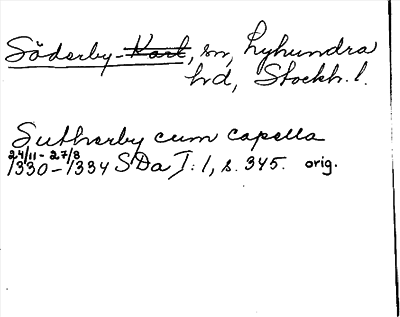 Söderby-Karl, sn, Lyhundra
hd, Stockh. l.
Sutherby cum capella
24/11 - 27/8
1330-1334 SDa I:1, s. 345. orig.